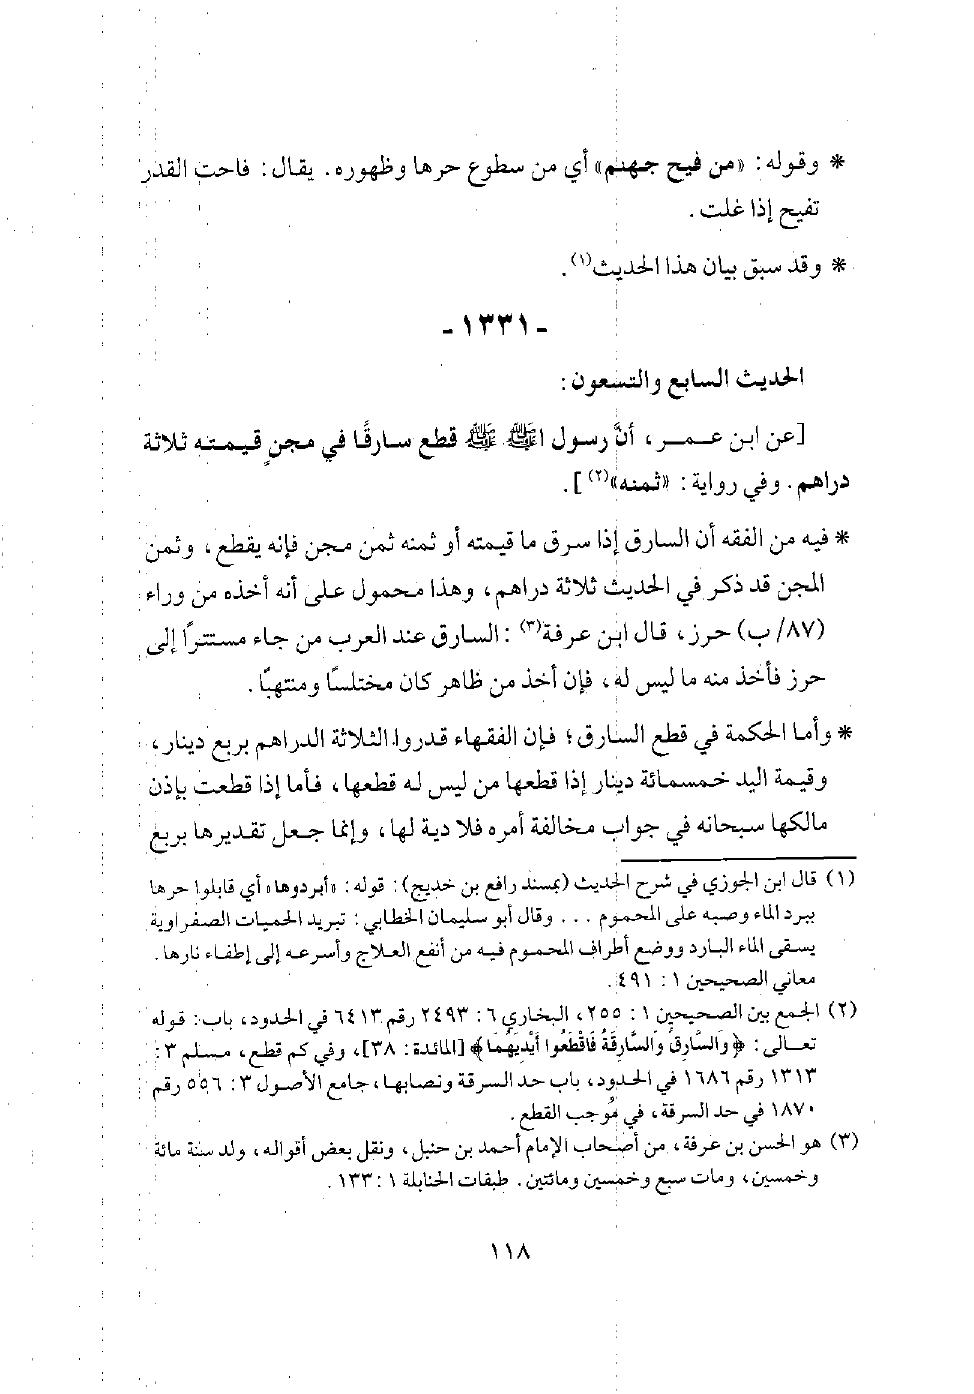 * وقوله: «من فيح جهنم» أي من سطوع حرها وظهوره. يقال: فاحت القدر
تفيح إذا غلت.
* وقد سبق بيان هذا الحديث(١).
- ١٣٣١ -
الحديث السابع والتسعون:
[عن ابن عمر، أنَّ رسول الله ﷺ قطع سارقًا في مجنٍ قيمته ثلاثة
دراهم. وفي رواية: «ثمنه»(٢)].
* فيه من الفقه أن السارق إذا سرق ما قيمته أو ثمنه ثمن مجن فإنه يقطع، وثمن
المجن قد ذكر في الحديث ثلاثة دراهم، وهذا محمول على أنه أخذه من وراء
(٨٧/ب) حرز، قال ابن عرفة(٣): السارق عند العرب من جاء مستترًا إلى
حرز فأخذ منه ما ليس له، فإن أخذ من ظاهر كان مختلسًا ومنتهبًا.
* وأما الحكمة في قطع السارق؛ فإن الفقهاء قدروا الثلاثة الدراهم بربع دينار،
وقيمة اليد خمسمائة دينار إذا قطعها من ليس له قطعها، فأما إذا قطعت بإذن
مالكها سبحانه في جواب مخالفة أمره فلا دية لها، وإنما جعل تقديرها بربع
(١) قال ابن الجوزي في شرح الحديث (بمسند رافع بن خديج): قوله: «أبردوها» أي قابلوا حرها
ببرد الماء وصبه على المحموم ... وقال أبو سليمان الخطابي: تبريد الحميات الصفراوية
يسقى الماء البارد ووضع أطراف المحموم فيه من أنفع العلاج وأسرعه إلى إطفاء نارها.
معاني الصحيحين ١: ٤٩١.
(٢) الجمع بين الصحيحين ١: ٢٥٥، البخاري ٦: ٢٤٩٣ رقم ٦٤١٣ في الحدود، باب: قوله
تعالى: ﴿وَالسَّارِقُ وَالسَّارِقَةُ فَاقْطَعُوا أَيْدِيَهُمَا﴾ [المائدة: ٣٨]، وفي كم قطع، مسلم ٣:
١٣١٣ رقم ١٦٨٦ في الحدود، باب حد السرقة ونصابها، جامع الأصول ٣: ٥٥٦ رقم
١٨٧٠ في حد السرقة، في مُوجب القطع.
(٣) هو الحسن بن عرفة، من أصحاب الإمام أحمد بن حنبل، ونقل بعض أقواله، ولد سنة مائة
وخمسين، ومات سبع وخمسين ومائتين. طبقات الحنابلة ١: ١٣٣.
١١٨